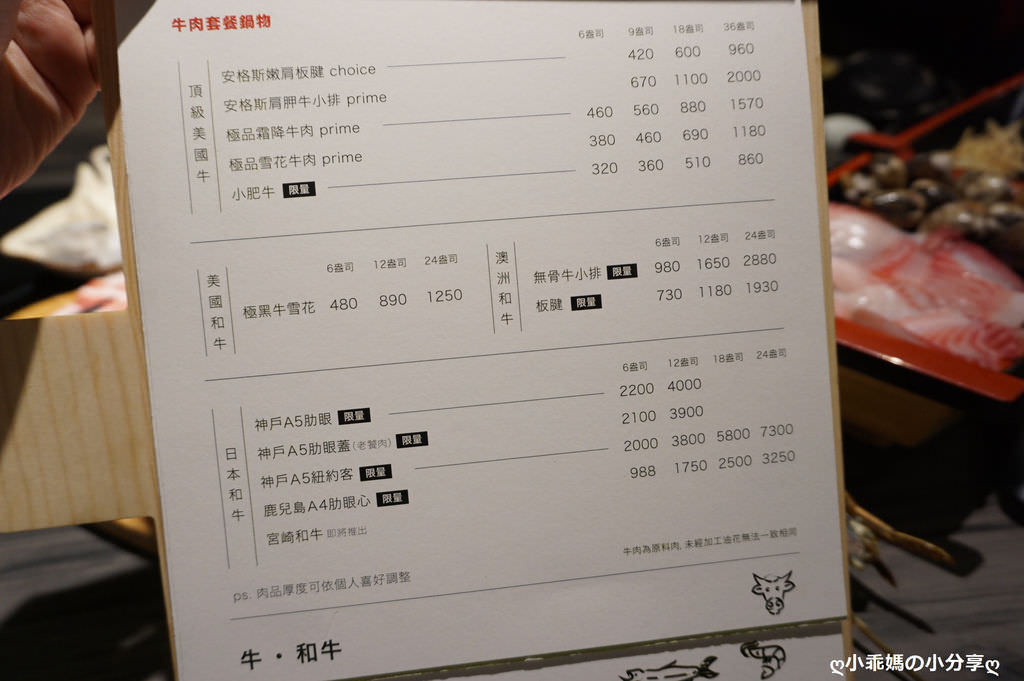 牛肉套餐鍋物
6盎司 9盎司 18盎司 36盎司
頂級美國牛
安格斯嫩肩板腱 choice 420 600 960
安格斯肩胛牛小排 prime 670 1100 2000
極品霜降牛肉 prime 460 560 880 1570
極品雪花牛肉 prime 380 460 690 1180
小肥牛 限量 320 360 510 860
美國和牛
6盎司 12盎司 24盎司
極黑牛雪花 480 890 1250
澳洲和牛
6盎司 12盎司 24盎司
無骨牛小排 限量 980 1650 2880
板腱 限量 730 1180 1930
6盎司 12盎司 18盎司 24盎司
日本和牛
神戶A5肋眼 限量 2200 4000
神戶A5肋眼蓋(老饕肉) 限量 2100 3900
神戶A5紐約客 限量 2000 3800 5800 7300
鹿兒島A4肋眼心 限量 988 1750 2500 3250
宮崎和牛 即將推出
牛肉為原料肉, 未經加工油花無法一致相同
ps. 肉品厚度可依個人喜好調整
牛・和牛
ღ小乖媽の小分享ღ